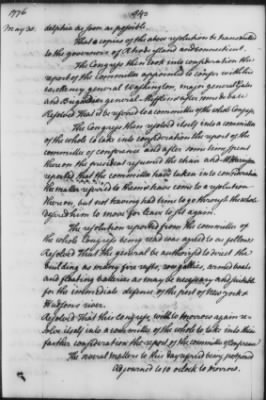 1776
242
May 30.
delphia as soon as possible.
That a copies of the above resolution be transmitted
to the governors of Rhode Island and Connecticut.
The Congress then took into consideration the
report of the Committee appointed to confer with his
excellency general Washington, major general Gates
and Brigadier general Mifflin & after some debate
Resolved That it be referred to a committee of the whole Congress
The Congress then resolved itself into a committee
of the whole to take into consideration the report of the
committee of conference and after some time spent
thereon the president resumed the chair and Mr Harrison
reported that the committee have taken into consideration
the matter referred to them & have come to a resolution
thereon, but not having had time to go through the whole
desired him to move for leave to sit again.
The resolution reported from the committee of
the whole Congress being read was agreed to as follows
Resolved That the general be authorised to direct the
building as many fire rafts, row gallies, armed boats
and floating batteries as may be necessary and suitable
for the immediate defence of the port of New York &
Hudsons river.
Resolved That this Congress will to morrow again re-
solve itself into a committee of the whole to take into their
farther consideration the report of the committee of Conference
The several matters to this day referred being postponed
Adjourned to 10 o'clock to morrow.